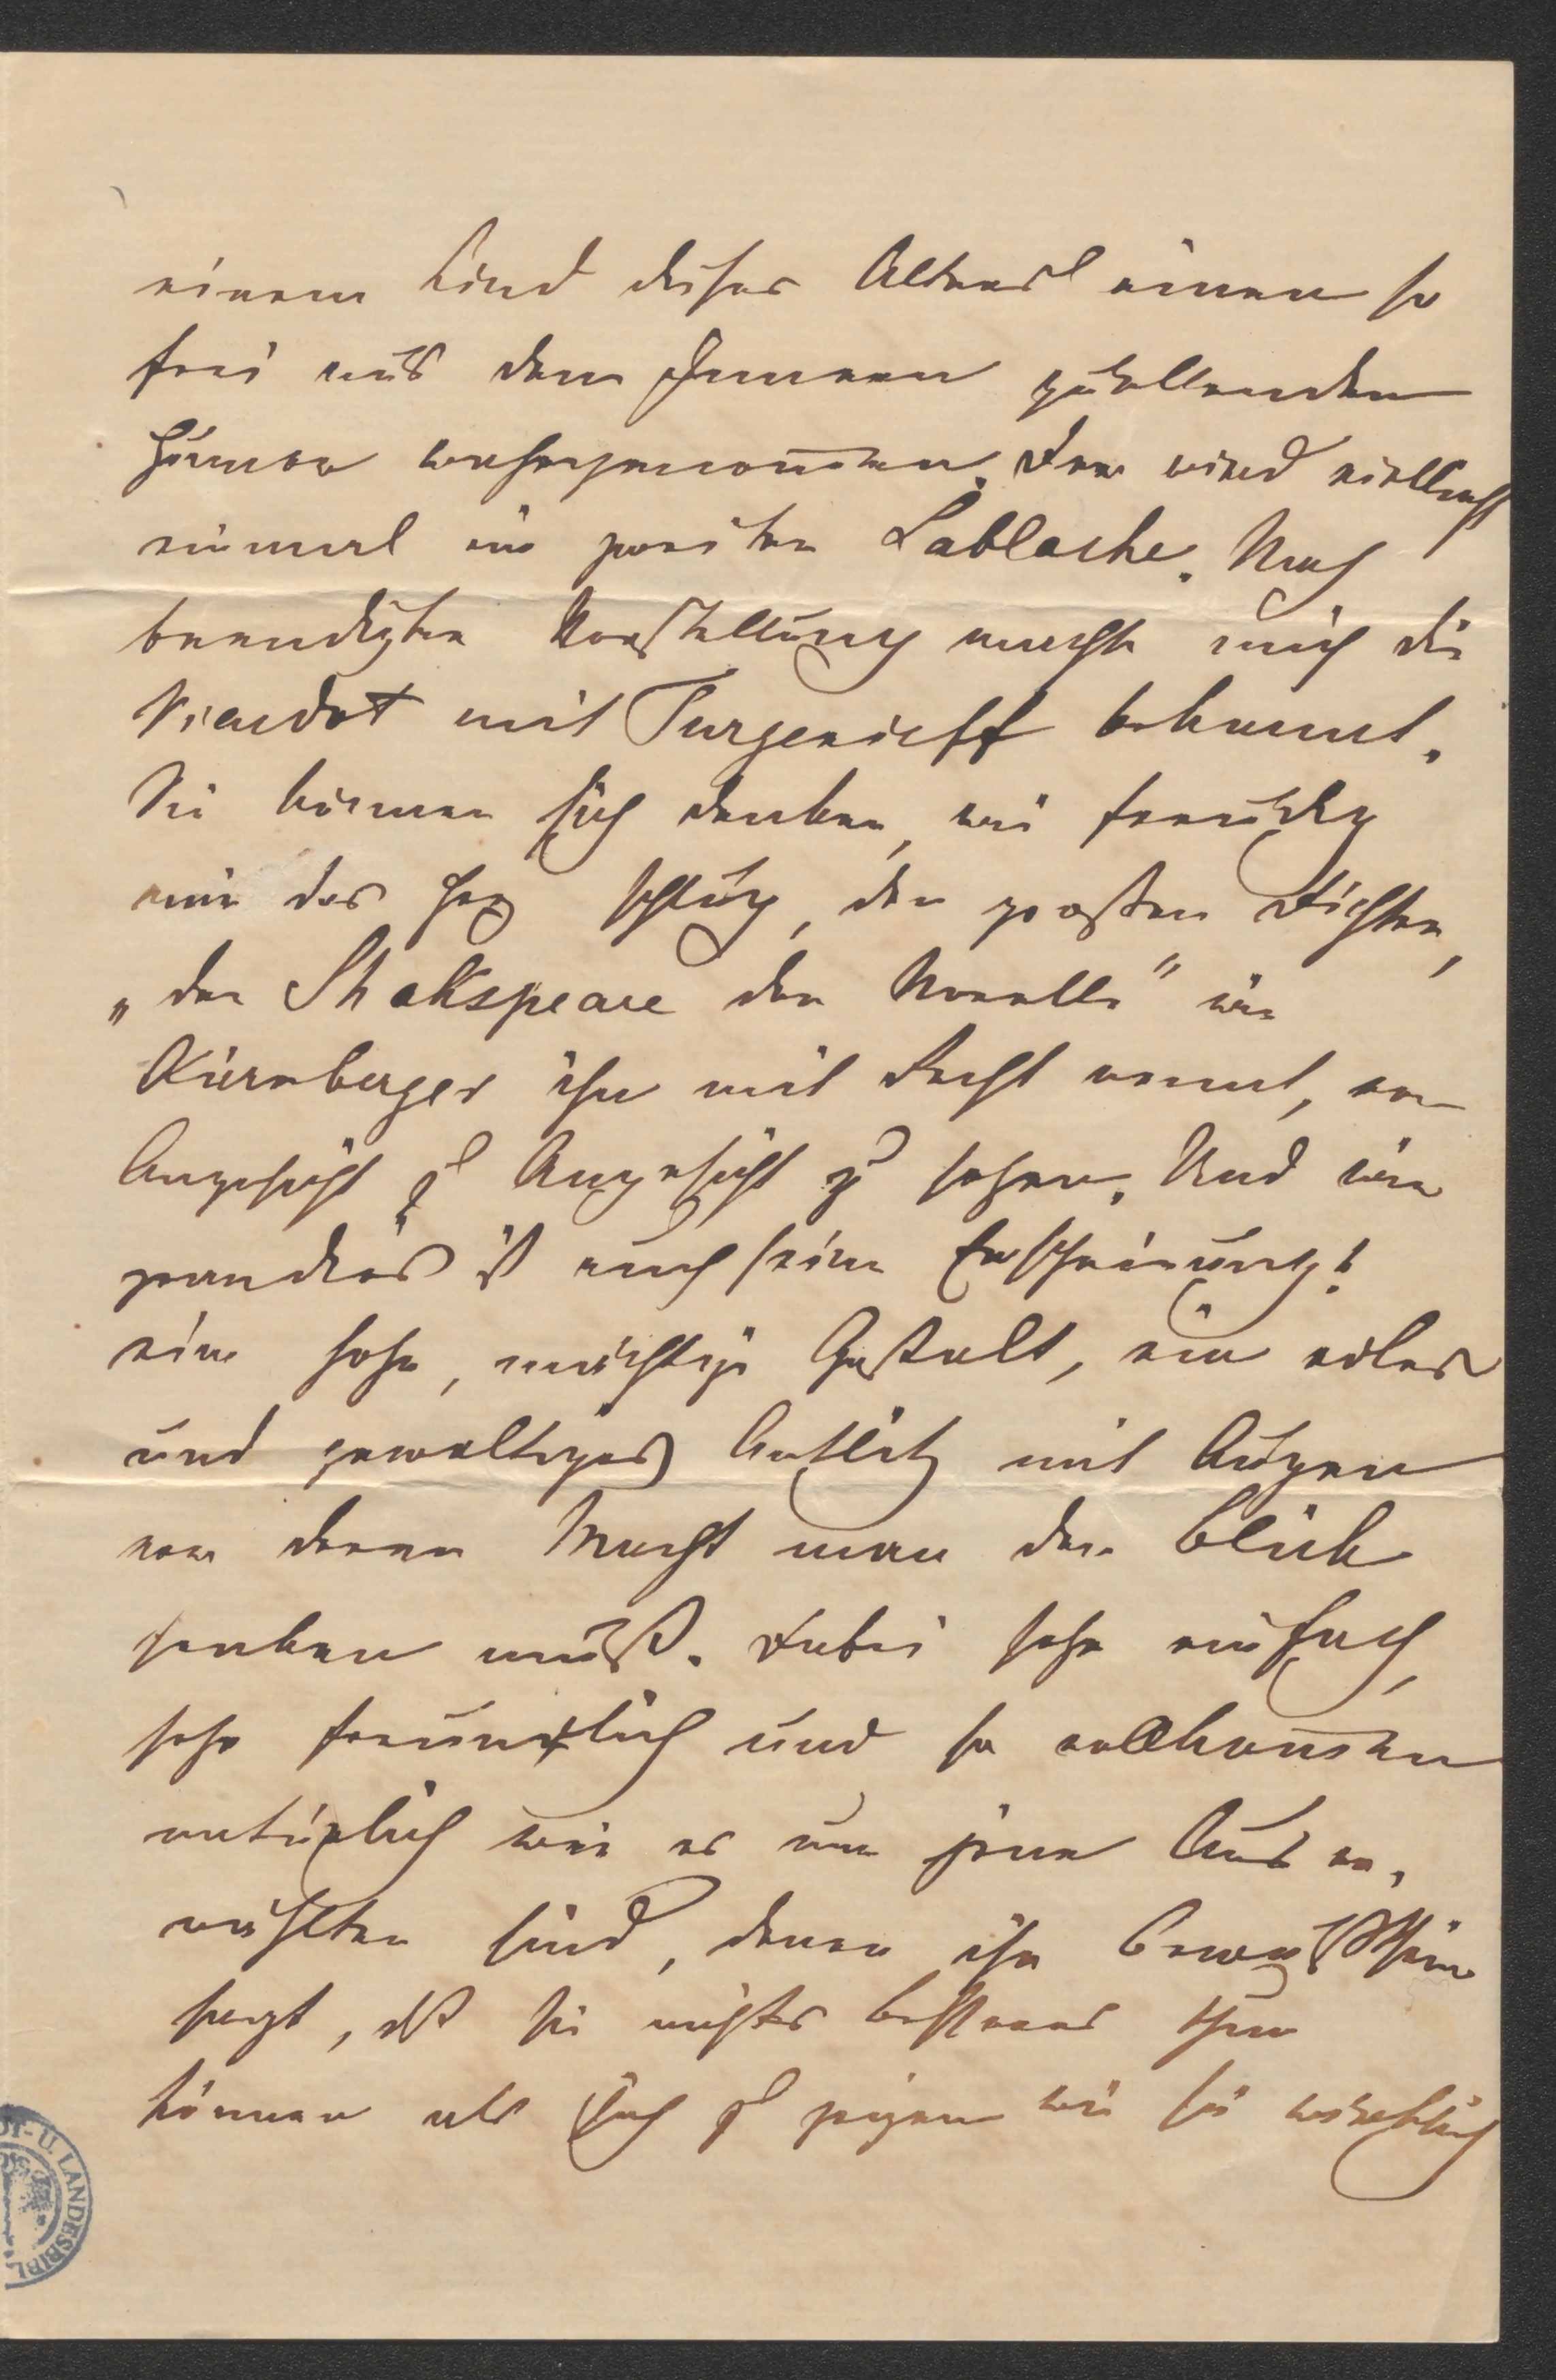 einem Kind dieses Alters einen so
frei aus dem Inneren quellenden
Humor wahrgenommen. Der wird vielleicht
einmal ein zweiter Lablache. Nach
beendigter Vorstellung machte mich die
Viardot mit Turgenieff bekannt.
Sie können sich denken, wie freudig
mir das Herz schlug, den großen Dichter,
„den Shakspeare der Novelle" wie
Kürnberger ihn mit Recht nennt, von
Angesicht zu Angesicht zu sehen. Und wie
grandios ist auch seine Erscheinung!
eine hohe, mächtige Gestalt, ein edles
und gewaltiges Antlitz mit Augen
vor deren Macht man den Blick
senken muß. Dabei sehr einfach,
sehr freundlich und so vollkommen
natürlich wie es nur jene Auser,
wählten sind, denen ihr Bewußtsein
sagt, daß sie nichts besseres thun
können als sich zu zeigen wie sie wirklich
DT- U. LANDESBIBL